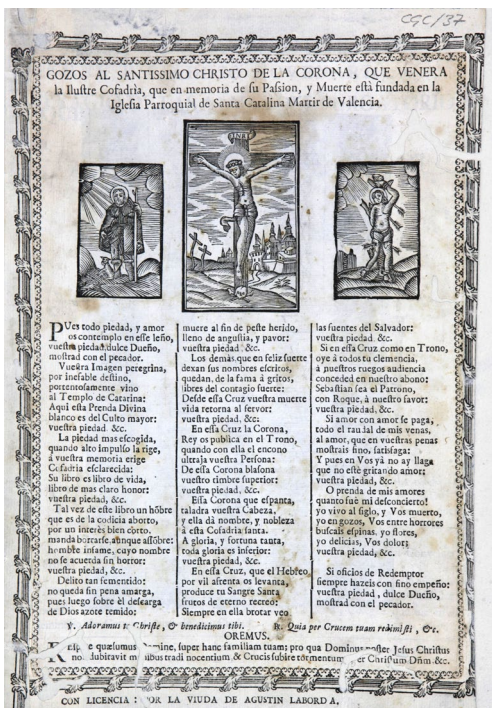 CGC/37
GOZOS AL SANTISSIMO CHRISTO DE LA CORONA, QUE VENERA
la Ilustre Cofadria, que en memoria de su Passion, y Muerte està fundada en la
Iglesia Parroquial de Santa Catalina Martir de Valencia.
INRI
PUes todo piedad, y amor
os contemplo en esse leño,
vuestra piedad dulce Dueño,
mostrad con el pecador.
Vuestra Imagen peregrina,
por inefable destino,
portentosamente vino
al Templo de Catarina:
Aqui esta Prenda Divina
blanco es del Culto mayor:
vuestra piedad &c.
La piedad mas escogida,
quando alto impulso la rige,
à vuestra memoria erige
Cofadria esclarecida:
Su libro es libro de vida,
libro de mas claro honor:
vuestra piedad, &c.
Tal vez de este libro un hõbre
que es de la codicia aborto,
por un interès bien corto.
manda borrarse, aunque assõbre:
hombre infame, cuyo nombre
no se acuerda sin horror:
vuestra piedad, &c.
Delito tan fementido:
no queda sin pena amarga,
pues luego sobre èl descarga
de Dios azote temido:
muere al fin de peste herido,
lleno de angustia, y pavor:
vuestra piedad. &c.
Los demàs, que en feliz suerte
dexan sus nombres escritos,
quedan, de la fama à gritos,
libres del contagio fuerte:
Desde essa Cruz vuestra muerte
vida retorna al fervor:
vuestra piedad, &c.
En essa Cruz la Corona,
Rey os publica en el Trono,
quando con ella el encono
ultraja vuestra Persona:
De essa Corona blasona
vuestro timbre superior:
vuestra piedad, &c.
Essa Corona que espanta,
taladra vuestra Cabeza,
y ella dà nombre, y nobleza
à esta Cofadria santa.
A gloria, y fortuna tanta,
toda gloria es inferior:
vuestra piedad, &c.
En essa Cruz, que el Hebreo,
por vil afrenta os levanta,
produce tu Sangre Santa
frutos de eterno recreo:
Siempre en ella brotar veo
las fuentes del Salvador:
vuestra piedad: &c.
Si en essa Cruz como en Trono,
oye à todos tu clemencia,
à nuestros ruegos audiencia
conceded en nuestro abono:
Sebastian sea el Patrono,
con Roque, à nuestro favor:
vuestra piedad, &c.
Si amor con amor se paga,
todo el raudal de mis venas,
al amor, que en vuestras penas
mostrais fino, satisfaga:
Y pues en Vos yà no ay llaga
que no estè gritando amor:
vuestra piedad, &c.
O prenda de mis amores
quanto fuè mi desconcierto!
yo vivo al siglo, y Vos muerto,
yo en gozos, Vos entre horrores
buscais espinas, yo flores,
yo delicias, Vos dolor:
vuestra piedad, &c.
Si oficios de Redemptor
siempre hazeis con fino empeño:
vuestra piedad, dulce Dueño,
mostrad con el pecador.
℣. Adoramus te Christe, & benedicimus tibi. ℟. Quia per Crucem tuam redimisti, &c.
OREMUS.
quæsumus Domine, super hanc familiam tuam: pro qua Dominus noster Jesus Christus
non dubitavit manibus tradi nocentium, & Crucis subire tormentum per Christum Dñm. &c.
CON LICENCIA: POR LA VIUDA DE AGUSTIN LABORDA.